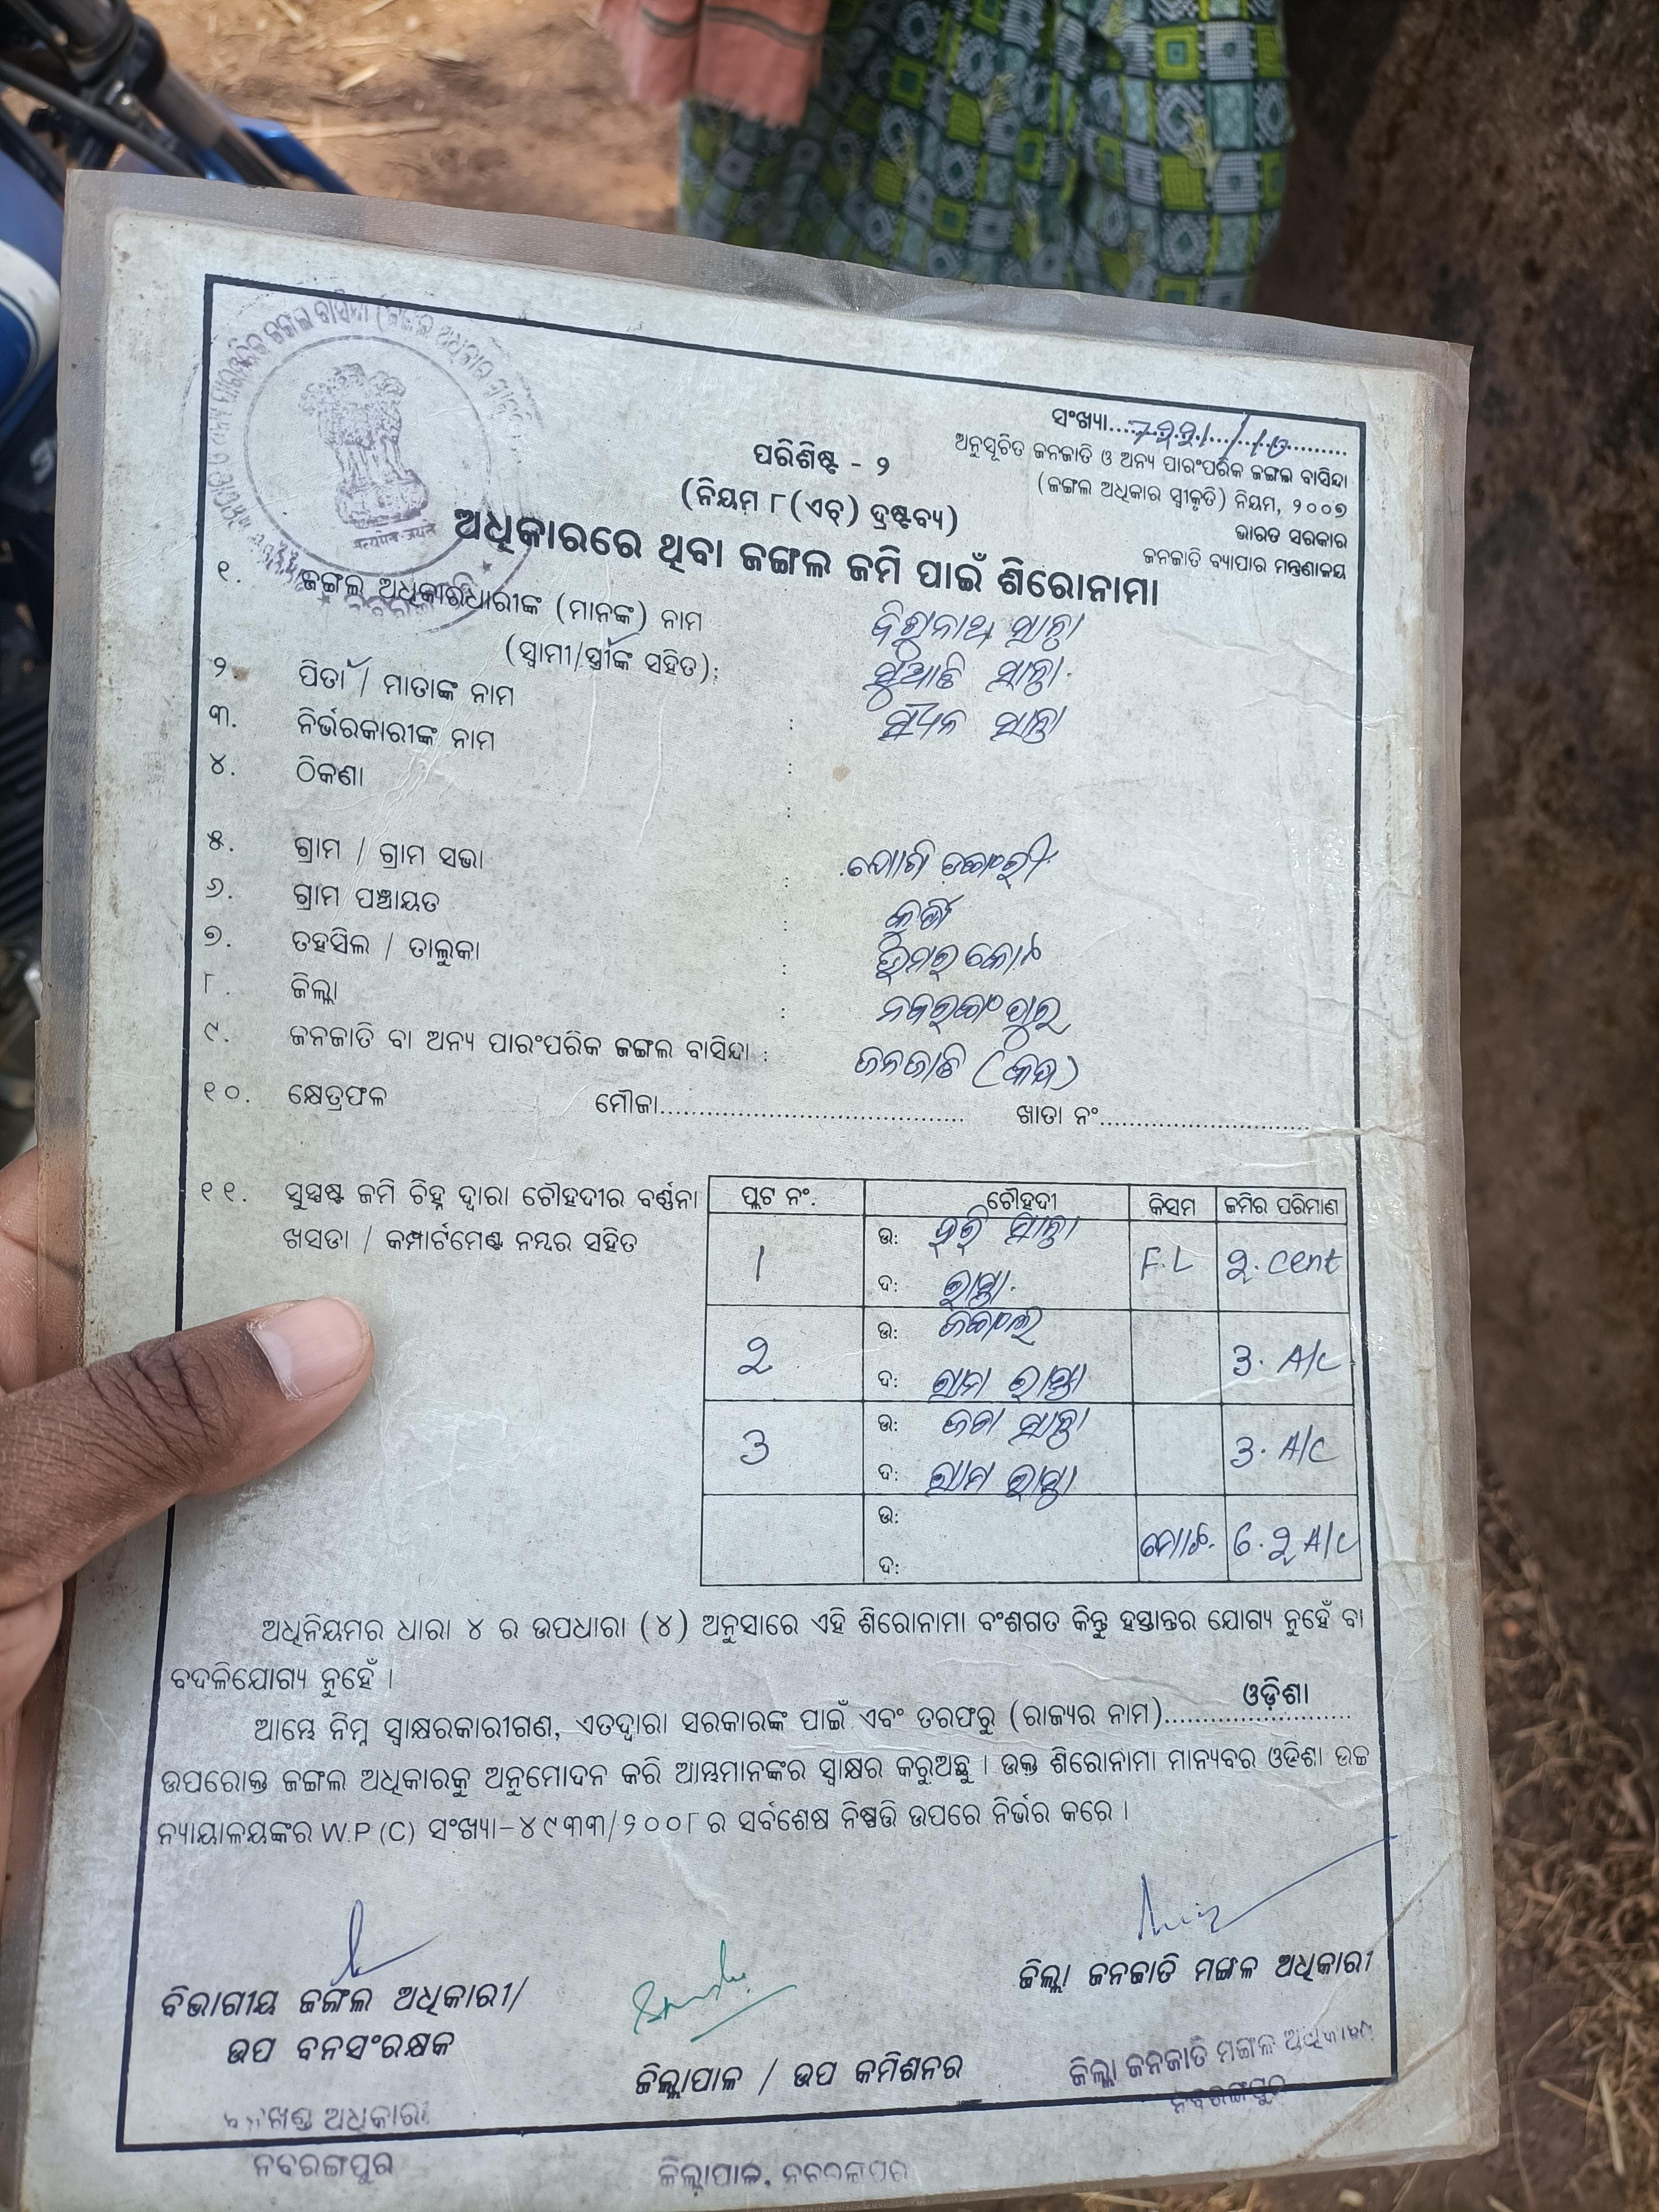 ସଂଖ୍ୟା....7221/10
ଅନୁସୂଚିତ ଜନଜାତି ଓ ଅନ୍ୟ ପାରଂପରିକ ଜଙ୍ଗଲ ବାସିନ୍ଦା
(ଜଙ୍ଗଲ ଅଧିକାର ସ୍ୱୀକୃତି) ନିୟମ, ୨୦୦୭
ଭାରତ ସରକାର
ଜନଜାତି ବ୍ୟାପାର ମନ୍ତ୍ରଣାଳୟ
ପରିଶିଷ୍ଟ - ୨
(ନିୟମ ୮(ଏଚ୍) ଦ୍ରଷ୍ଟବ୍ୟ)
ଅଧିକାରରେ ଥିବା ଜଙ୍ଗଲ ଜମି ପାଇଁ ଶିରୋନାମା
୧. ଜଙ୍ଗଲ ଅଧିକାରଧାରୀଙ୍କ (ମାନଙ୍କ) ନାମ ବିଶ୍ୱନାଥ ସାନ୍ତା
(ସ୍ୱାମୀ/ସ୍ତ୍ରୀଙ୍କ ସହିତ): ସାନ୍ତା
୨. ପିତା / ମାତାଙ୍କ ନାମ : ସାନ୍ତା
୩. ନିର୍ଭରକାରୀଙ୍କ ନାମ :
୪. ଠିକଣା :
୫. ଗ୍ରାମ / ଗ୍ରାମ ସଭା :
୬. ଗ୍ରାମ ପଞ୍ଚାୟତ :
୭. ତହସିଲ / ତାଲୁକା :
୮. ଜିଲ୍ଲା : ନବରଙ୍ଗପୁର
୯. ଜନଜାତି ବା ଅନ୍ୟ ପାରଂପରିକ ଜଙ୍ଗଲ ବାସିନ୍ଦା : ଜନଜାତି (କନ୍ଧ)
୧୦. କ୍ଷେତ୍ରଫଳ ମୌଜା.................... ଖାତା ନଂ....................
୧୧. ସୁସ୍ପଷ୍ଟ ଜମି ଚିହ୍ନ ଦ୍ୱାରା ଚୌହଦୀର ବର୍ଣ୍ଣନା
ଖସଡା / କମ୍ପାର୍ଟମେଣ୍ଟ ନମ୍ବର ସହିତ
ପ୍ଲଟ ନଂ. ଚୌହଦୀ କିସମ ଜମିର ପରିମାଣ
1 ଉ: ହରି ସାନ୍ତା F.L ୨. cent
ଦ: ରାସ୍ତା
୨ ଉ: ଜଙ୍ଗଲ ୩. A/C
ଦ: ଗ୍ରାମ ରାସ୍ତା
୩ ଉ: ସାନ୍ତା ୩. A/C
ଦ: ଗ୍ରାମ ରାସ୍ତା
ଉ: ମୋଟ. ୬.୨ A/C
ଦ:
ଅଧିନିୟମର ଧାରା ୪ ର ଉପଧାରା (୪) ଅନୁସାରେ ଏହି ଶିରୋନାମା ବଂଶଗତ କିନ୍ତୁ ହସ୍ତାନ୍ତର ଯୋଗ୍ୟ ନୁହେଁ ବା
ବଦଳିଯୋଗ୍ୟ ନୁହେଁ ।
ଆମ୍ଭେ ନିମ୍ନ ସ୍ୱାକ୍ଷରକାରୀଗଣ, ଏତଦ୍ୱାରା ସରକାରଙ୍କ ପାଇଁ ଏବଂ ତରଫରୁ (ରାଜ୍ୟର ନାମ)....ଓଡ଼ିଶା....
ଉପରୋକ୍ତ ଜଙ୍ଗଲ ଅଧିକାରକୁ ଅନୁମୋଦନ କରି ଆମ୍ଭମାନଙ୍କର ସ୍ୱାକ୍ଷର କରୁଅଛୁ । ଉକ୍ତ ଶିରୋନାମା ମାନ୍ୟବର ଓଡିଶା ଉଚ୍ଚ
ନ୍ୟାୟାଳୟଙ୍କର W.P (C) ସଂଖ୍ୟା-୪୯୩୩/୨୦୦୮ ର ସର୍ବଶେଷ ନିଷ୍ପତ୍ତି ଉପରେ ନିର୍ଭର କରେ ।
ବିଭାଗୀୟ ଜଙ୍ଗଲ ଅଧିକାରୀ/
ଉପ ବନସଂରକ୍ଷକ
ଜିଲ୍ଲାପାଳ / ଉପ କମିଶନର
ଜିଲ୍ଲା ଜନଜାତି ମଙ୍ଗଳ ଅଧିକାରୀ
ଜିଲ୍ଲା ଜନଜାତି ମଙ୍ଗଳ ଅଧିକାରୀ
ନବରଙ୍ଗପୁର
ବନଖଣ୍ଡ ଅଧିକାରୀ
ନବରଙ୍ଗପୁର
ଜିଲ୍ଲାପାଳ, ନବରଙ୍ଗପୁର